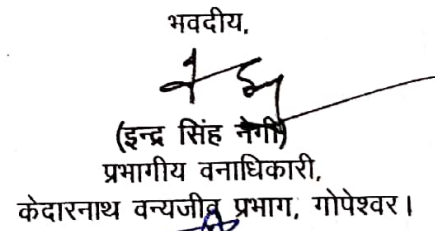 भवदीय,
(इन्द्र सिंह नेगी)
प्रभागीय वनाधिकारी,
केदारनाथ वन्यजीव प्रभाग, गोपेश्वर।